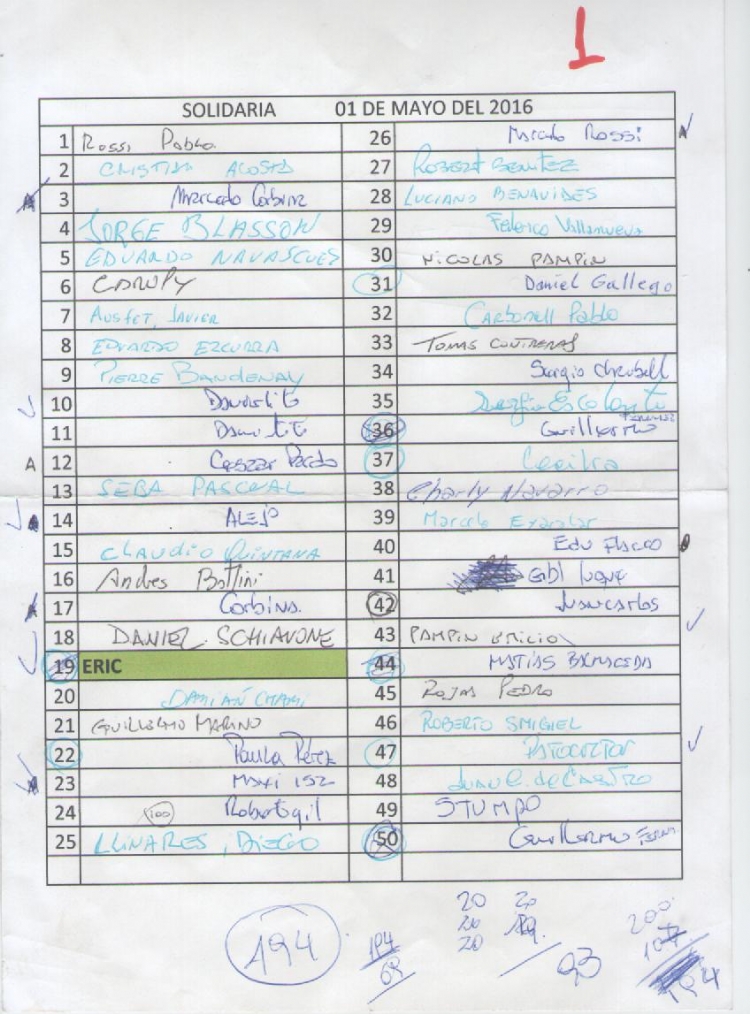 1
SOLIDARIA 01 DE MAYO DEL 2016
1 Rossi Pablo
2 CRISTIAN ACOSTA
3 Marcelo Corbin
4 JORGE BLASSON
5 EDUARDO NAVASCUES
6 CARUPY
7 AUSFET, JAVIER
8 EDUARDO EZCURRA
9 PIERRE BANDENAY
10
11
12 Pardo
A
13 SEBA PASCUAL
14 ALEJO
15 CLAUDIO QUINTANA
16 Andres Bottini
17 Corbino
18 DANIEL SCHIAVONE
19 ERIC
20 DAMIAN CHAMI
21 GUILLERMO MARINO
22 Paula Pérez
23 MAXI
24 100 Robertigil
25 LLINARES, DIEGO
26 Marcelo Rossi
27 ROBERT BENITEZ
28 LUCIANO BENAVIDES
29 Federico Villanueva
30 NICOLAS PAMPIN
31 Daniel Gallego
32 Carbonell Pablo
33 TOMAS CONTRERAS
34 Sergio
35 Sergio Escalante
36 Guillermo
37 Cecilia
38 Charly Navarro
39 Marcelo
40 Edu Flaco
41 Gabi luque
42 Juancarlos
43 PAMPIN
44 MATIAS BALMACEDA
45 ROJAS PEDRO
46 ROBERTO SMIGIEL
47
48 Juan C. de Castro
49 STUMPO
50 Guillermo
194
194
20 20
20
20
93
200